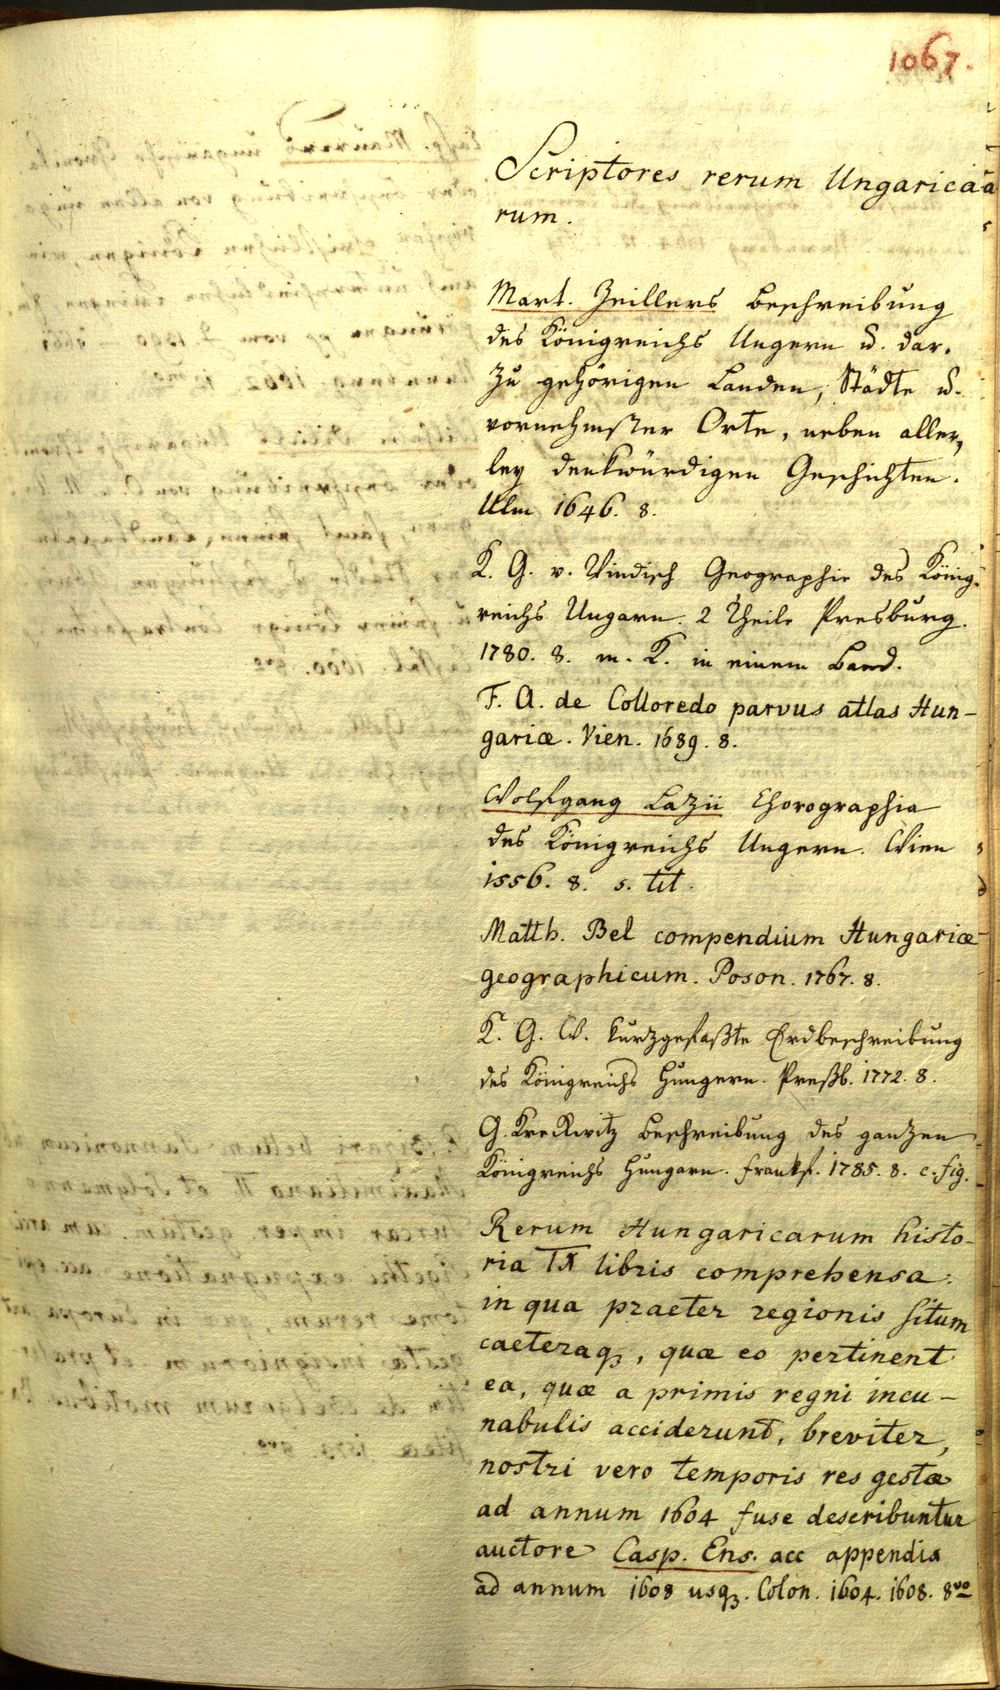 1067.
Scriptores rerum Ungarica-
rum.
Mart. Zeillers Beschreibung
des Königreichs Ungern u. dar-
zu gehörigen Landen, Städte u.
vornehmster Orte, neben aller,
ley denkwürdigen Geschichten.
Ulm 1646. 8.
K. G. v. Windisch Geographie des König-
reichs Ungarn. 2 Theile Presburg.
1780. 8. m. K. in einem Band.
F. A. de Colloredo parvus atlas Hun-
gariæ. Vien. 1689. 8.
Wolfgang Lazii Chorographia
des Königreichs Ungern. Wien
1556. 8. s. tit.
Matth. Bel compendium Hungariæ
geographicum. Poson. 1767. 8.
K. G. W. kurzgefaßte Erdbeschreibung
des Königreichs Hungern. Preßb. 1772. 8.
G. Krekwitz Beschreibung des ganzen
Königreichs Hungarn. Frankf. 1785. 8. c. fig.
Rerum Hungaricarum histo-
ria IX libris comprehensa:
in qua praeter regionis situm
caeteraq, quæ eo pertinent
ea, quæ a primis regni incu-
nabulis acciderunt, breviter,
nostri vero temporis res gestæ
ad annum 1604 fuse describuntur
auctore Casp. Ens. acc appendix
ad annum 1608 usq. Colon. 1604. 1608. 8vo